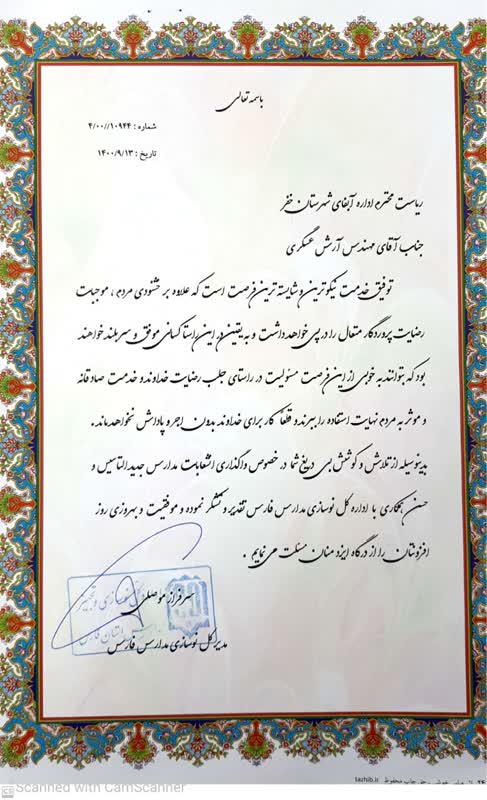 باسمه تعالی
شماره : ۴/۰۰//۱۰۹۴۴
تاریخ : ۱۴۰۰/۹/۱۳
ریاست محترم اداره آبفای شهرستان خفر
جناب آقای مهندس آرش عسگری
توفیق خدمت نیکوترین و شایسته ترین فرصت است که علاوه بر خشنودی مردم ، موجبات
رضایت پروردگار متعال را در پی خواهد داشت و به یقین در این راستا کسانی موفق و سربلند خواهند
بود که بتوانند به خوبی از این فرصت مسئولیت در راستای جلب رضایت خداوند و خدمت صادقانه
و موثر به مردم نهایت استفاده را ببرند و قطعاً کار برای خداوند بدون اجر و پاداش نخواهد ماند.
بدینوسیله از تلاش و کوشش بی دریغ شما در خصوص واگذاری انشعابات مدارس جدید التاسیس و
حسن همکاری با اداره کل نوسازی مدارس فارس تقدیر و تشکر نموده و موفقیت و بهروزی روز
افزونتان را از درگاه ایزد منان مسئلت می نمایم .
سرفراز موصلی
مدیر کل نوسازی مدارس فارس
نوسازی و تجهیز
استان فارس
چاپ محفوظ tazhib.ir
CS Scanned with CamScanner